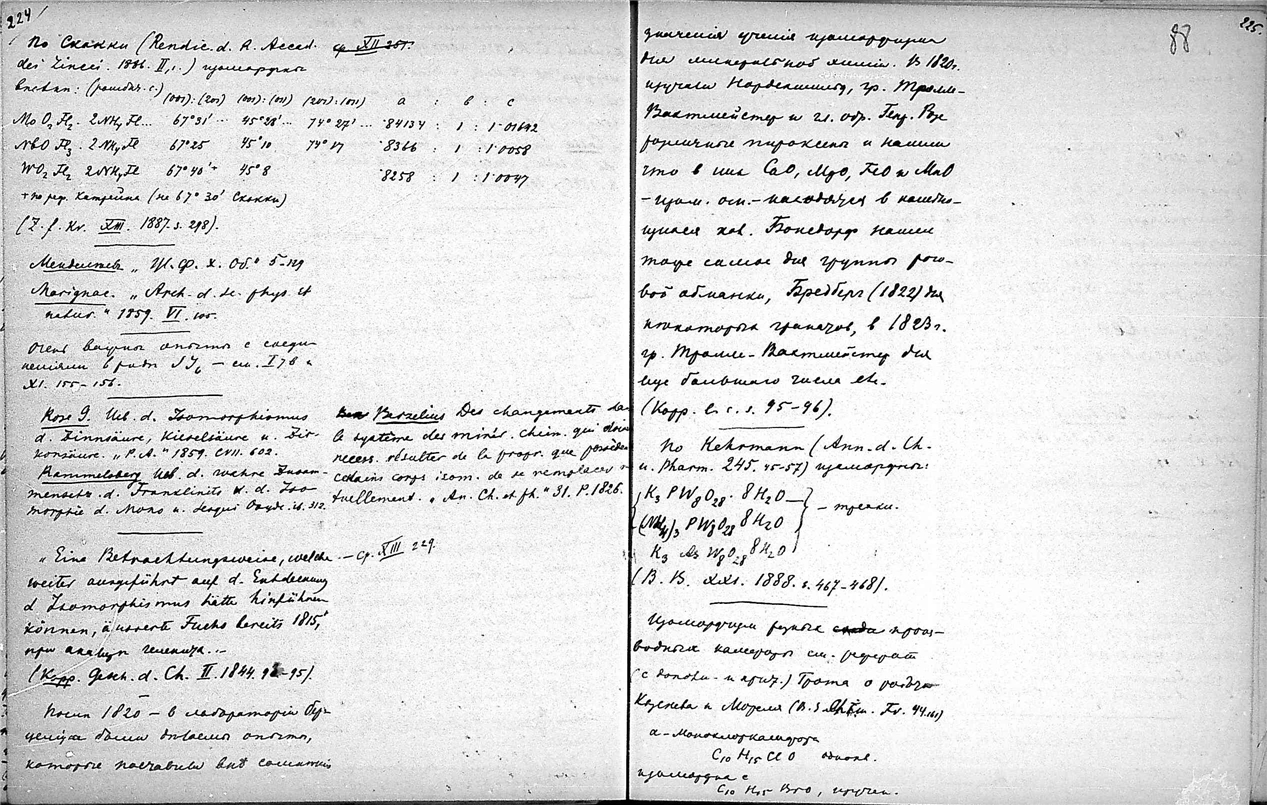 224
По Скакки (Rendic. d. R. Accad.
dei Lincei. 1886. II, 1.) изоморфны
(001):(201) (001):(011) (201):(011) a : b : c
MoO2Fl2. 2NH4Fl... 67°31' ... 45°28' ... 74°27' ... ·84134 : 1 : 1·01642
NbO Fl3. 2NH4Fl 67°25 45°10 74°17 ·8366 : 1 : 1·0058
WO2Fl2 2NH4Fl 67°40'+ 45°8 ·8258 : 1 : 1·0047
+ по реф. (не 67°30' Скакки)
(Z. f. Kr. XIII. 1887. s. 298).
ср. XII 257.
Менделеев „ Ж. Ф. Х. Об." 5-129
Marignac. „ Arch. d. sc. phys. et
natur. " 1859. VI. 105.
Очень важны опыты с соеди-
нениями
XI. 155-156.
Rose G. Ueb. d. Isomorphismus
d. Zinnsäure, Kieselsäure u. Zir-
konsäure. „ P. A." 1859. CVII. 602.
Rammelsberg Ueb. d. wahre Zusam-
mensetz. d. Franklinits u. d. Iso-
morphie d. Mono u. Sesqui Oxyde. ib. 312.
Berzelius Des changements dans
le système des minér. chim. qui doiv
necess. résulter de la propr. que possèden
certains corps isom. de se remplacer m
tuellement. „ An. Ch. et ph." 31. P. 1826.
„ Eine Betrachtungsweise, welche
weiter ausgeführt auf d. Entdeckung
d Isomorphismus hätte hinführen
können, äusserte Fuchs bereits 1815,"
при анализе геленита. –
(Kopp. Gesch. d. Ch. II. 1844. 94-95).
– ср. XIII 229.
После 1820 – в лаборатории Бер-
целиуса были делаемы опыты,
которые поставили вне сомнения
225.
88
значения учения изоморфизма
для минеральной химии. В 1820г.
изучали Норденшильд, гр. Тролле-
Вахтмейстер и гл. обр. Генр. Розе
различные пироксены и нашли
что в них CaO, MgO, FeO и MnO
– изом. осн. – находятся в
кол. Бонсдорф нашел
тоже самое для группы рого-
вой обманки, Бредберг (1822) для
некоторых гранатов, в 1823г.
гр. Тролле-Вахтмейстер для
еще большаго числа etc.
(Kopp. l. c. s. 95-96).
По Kehrmann (Ann. d. Ch.
u. Pharm. 245. 45-57) изоморфны:
K3 PW8O28. 8H2O
(NH4)3 PW8O28 8H2O
K3 As W8O28 8H2O
– трекл.
(B. B. XXI. 1888. s. 467-468).
Изоморфизм разных произ-
водных камфоры см. реферат
(с дополн. и прим.) Грота о
и Мореля (Z. f. Kr. 44.161)
α-Монохлоркамфора
C10 H15 Cl O
изоморфна с
C10 H15 Br O,